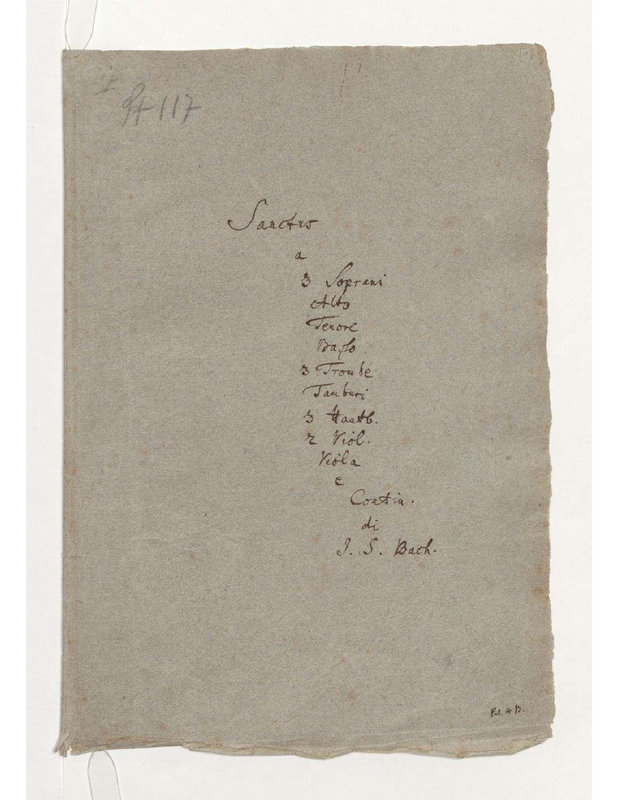 117
Sanctus
a
3 Soprani
Alto
Tenore
Basso.
3 Trombe
Tamburi
3 Hautb.
2 Viol.
Viola
e
Contin.
di
J. S. Bach.